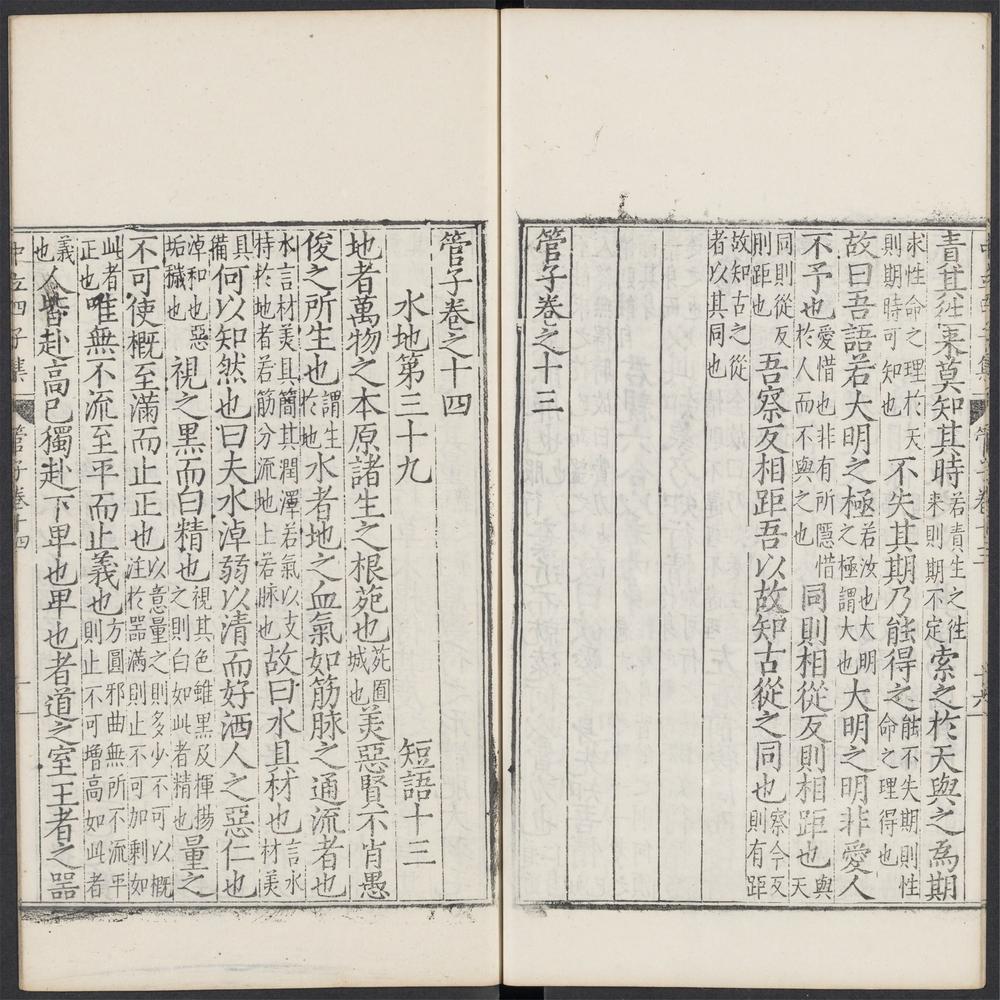 責其徃来莫知其時若責生之徃来則期不定索之於天與之為期
求性命之理於天則期時可知也不失其期乃能得之能不失期則性命之理得也
故曰吾語若大明之極若汝也大明之極謂大也大明之明非愛人
不予也愛惜也非有所隱惜於人而不與之也同則相從反則相距也與天
同則從反則距也吾察反相距吾以故知古從之同也察今反則有距
故知古之從者以其同也
管子卷之十三
管子卷之十四
水地第三十九 短語十三
地者萬物之本原諸生之根菀也菀囿城也美惡賢不肖愚
俊之所生也謂生於地水者地之血氣如筋脉之通流者也
水言材美具簡其潤澤若氣以支持於地者若筋分流地上若脉也故曰水具材也言水材美
具備何以知然也曰夫水淖弱以清而好洒人之惡仁也
淖和也惡垢穢也視之黑而白精也視其色雖黑及揮揚之則白如此者精也量之
不可使概至滿而止正也以意量之則多少不可以概注於器滿則止不可加剩如
此者正也唯無不流至平而止義也方圓邪曲無所不流平則止不可增高如此者
義也人皆赴高已獨赴下卑也卑也者道之室王者之器
中立四子集 管子卷十四 一